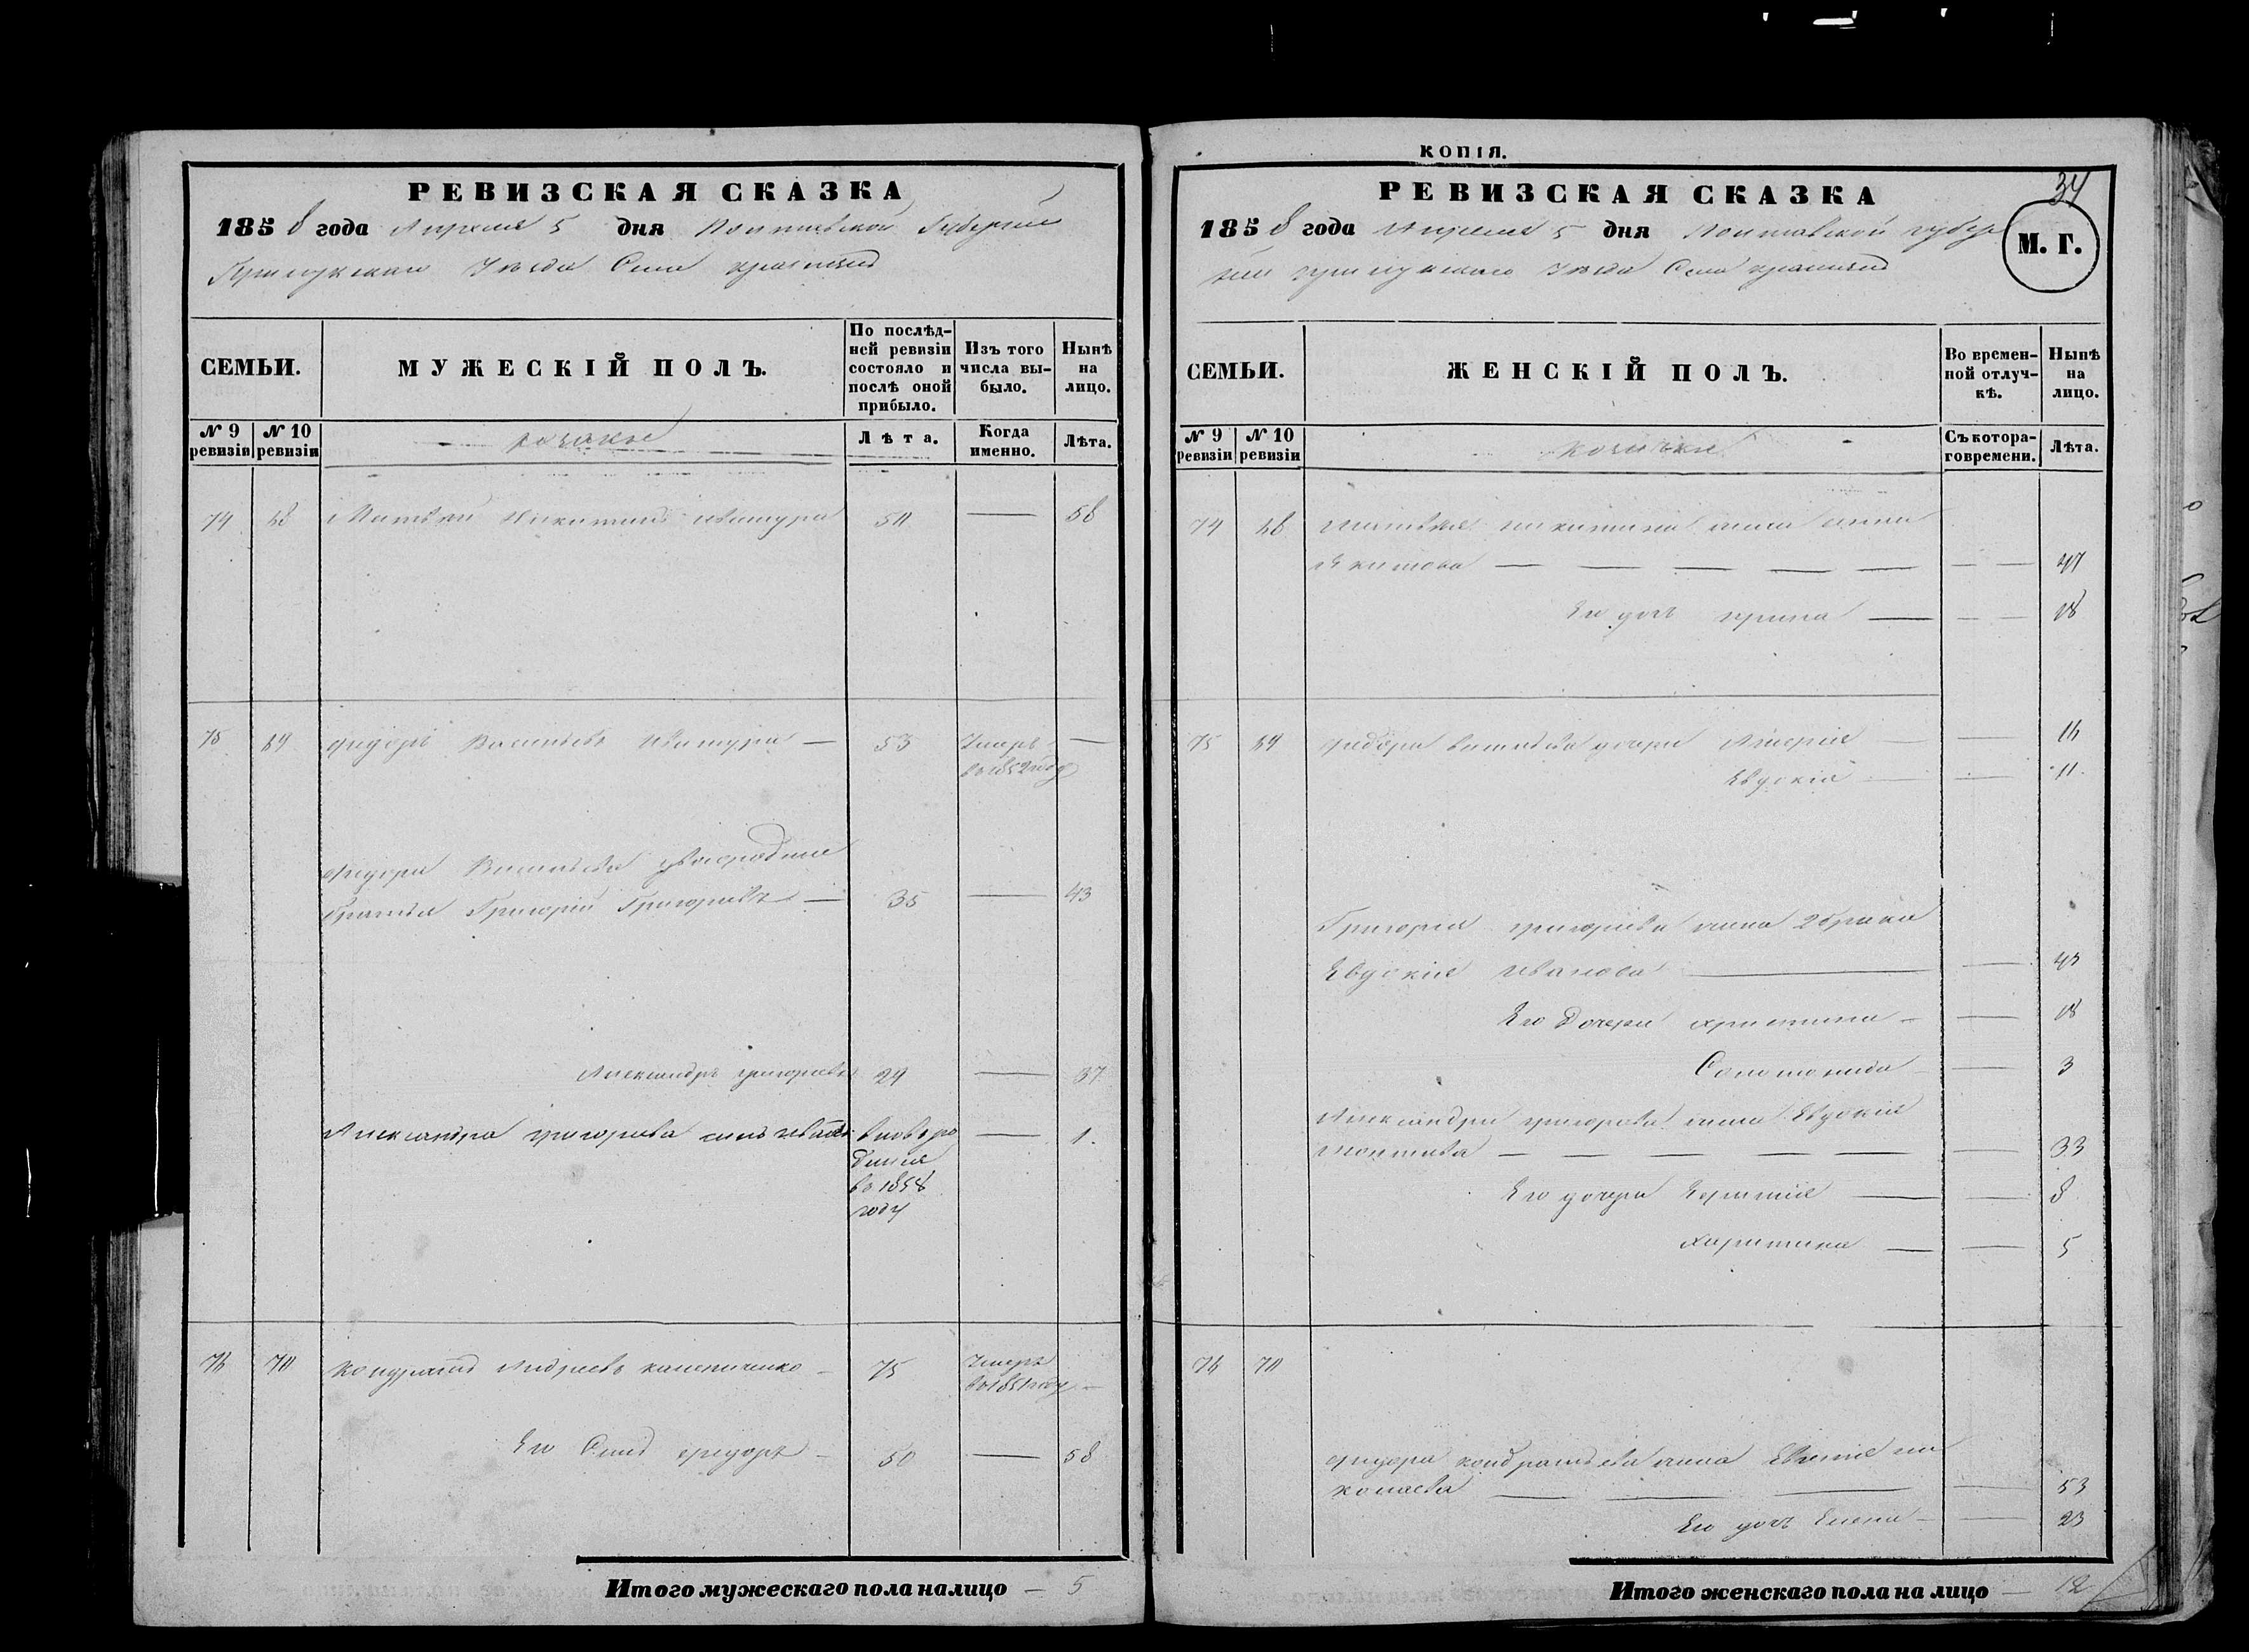 РЕВИЗСКАЯ СКАЗКА
1858 года Апреля 5 дня Полтавской Губернии
Прилукскаго Уезда Села
СЕМЬИ.
МУЖЕСКІЙ ПОЛЪ.
По послѣд-
ней ревизіи
состояло и
послѣ оной
прибыло.
Изъ того
числа вы-
было.
Нынѣ
на
лицо.
№ 9
ревизіи
№ 10
ревизіи
козаки
Лѣта.
Когда
именно.
Лѣта.
74 Матвѣй Никитинъ 50 — 58
75 69 Федоръ Васильевъ — 53 Умеръ —
в 1852 году
Федора Васильева двоюродные
братья Григорій Григорьевъ — 35 — 43
Александръ Григорьевъ 29 — 37
Александра Григорьева сынъ Иванъ вновь ро — 1.
во 1858
году
76 70 Кондратъ Андреевъ — 75 Умеръ
в 1851 году —
Его Сынъ Федоръ — 50 — 58
Итого мужескаго пола налицо — 5
КОПІЯ.
34
РЕВИЗСКАЯ СКАЗКА
1858 года Апреля 5 дня Полтавской губер
ніи Прилукскаго Уезда Села
М. Г.
СЕМЬИ.
ЖЕНСКІЙ ПОЛЪ.
Во времен-
ной отлуч-
кѣ.
Нынѣ
на
лицо.
№ 9
ревизіи
№ 10
ревизіи
козачки
Съ котора-
го времени.
Лѣта.
74 Матвея Никитина жена Анна
— — — — — — — 47
Его дочь Ирина — — — 18
75 69 Федора Васильева дочери Марія — — 16
Евдокія — — 11.
Григорія Григорьева жена 2 брака
Евдокія Иванова — — 43
Его Дочери Христина — — 18
Соломонида — — 3
Александра Григорьева жена Евдокія
— — — — — — 33
Его дочери — — 8
Харитина — — 5
76 70
Федора Кондратьева жена Евгенія Ни
колаева — — — — 53
Его дочь Елена — — 23
Итого женскаго пола на лицо — 12